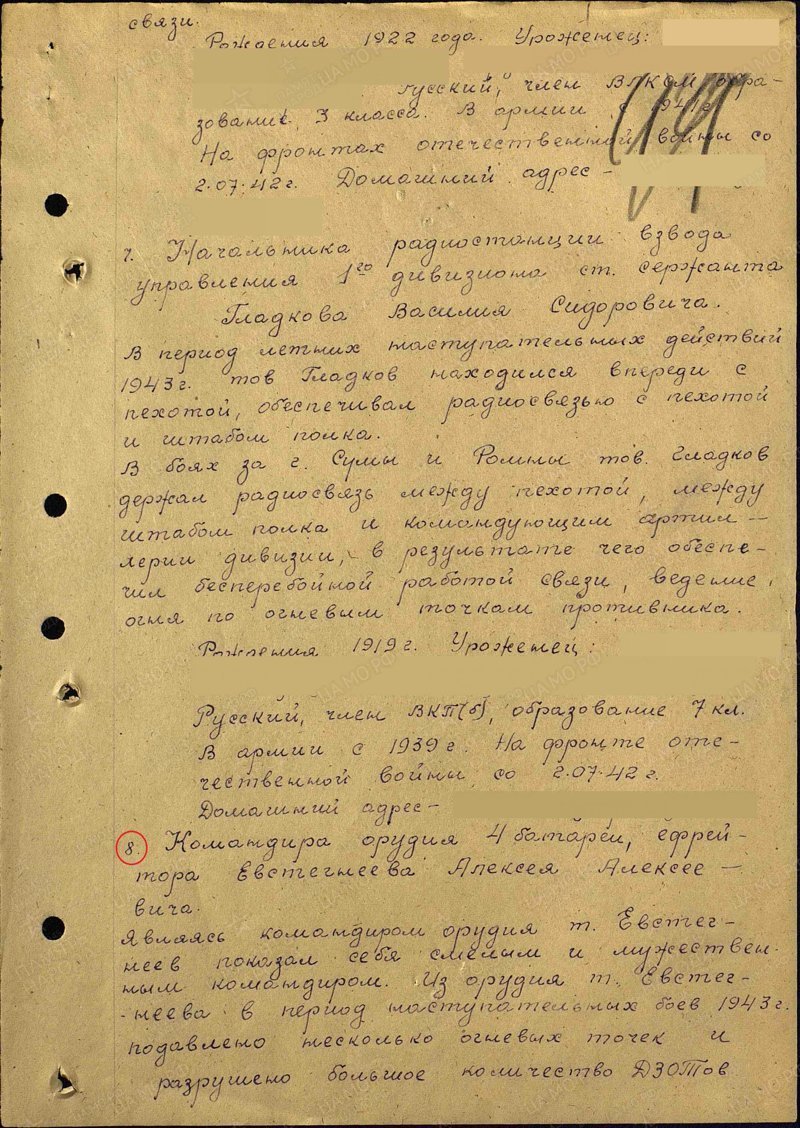 связи.
Рождения 1922 года. Урожемец:
русский, член ВЛКСМ обра-
зование 3 класса. В армии с 1941 г.
На фронтах отечественной войны со
2.07.42 г. Домашний адрес -
7. Начальника радиостанции взвода
управления 1го дивизиона ст. сержанта
Гладкова Василия Сидоровича.
В период летних наступательных действий
1943 г. тов Гладков находился впереди с
пехотой, обеспечивал радиосвязью с пехотой
и штабом полка.
В боях за г. Сумы и Ромны тов. Гладков
держал радиосвязь между пехотой, между
штабом полка и командующим артил-
лерии дивизии, в результате чего обеспе-
чил бесперебойной работой связи, ведение
огня по огневым точкам противника.
Рождения 1919 г. Уроженец:
Русский, член ВКП(б), образование 7 кл.
В армии с 1939 г. На фронте оте-
чественной войны со 2.07.42 г.
Домашний адрес -
8. Командира орудия 4 батареи, ефрей-
тора Евстегнеева Алексея Алексее-
вича.
Являясь командиром орудия т. Евстег-
неев показал себя смелым и мужествен-
ным командиром. Из орудия т. Евстег-
-неева в период наступательных боев 1943 г.
подавлено несколько огневых точек и
разрушено большое количество ДЗОТов